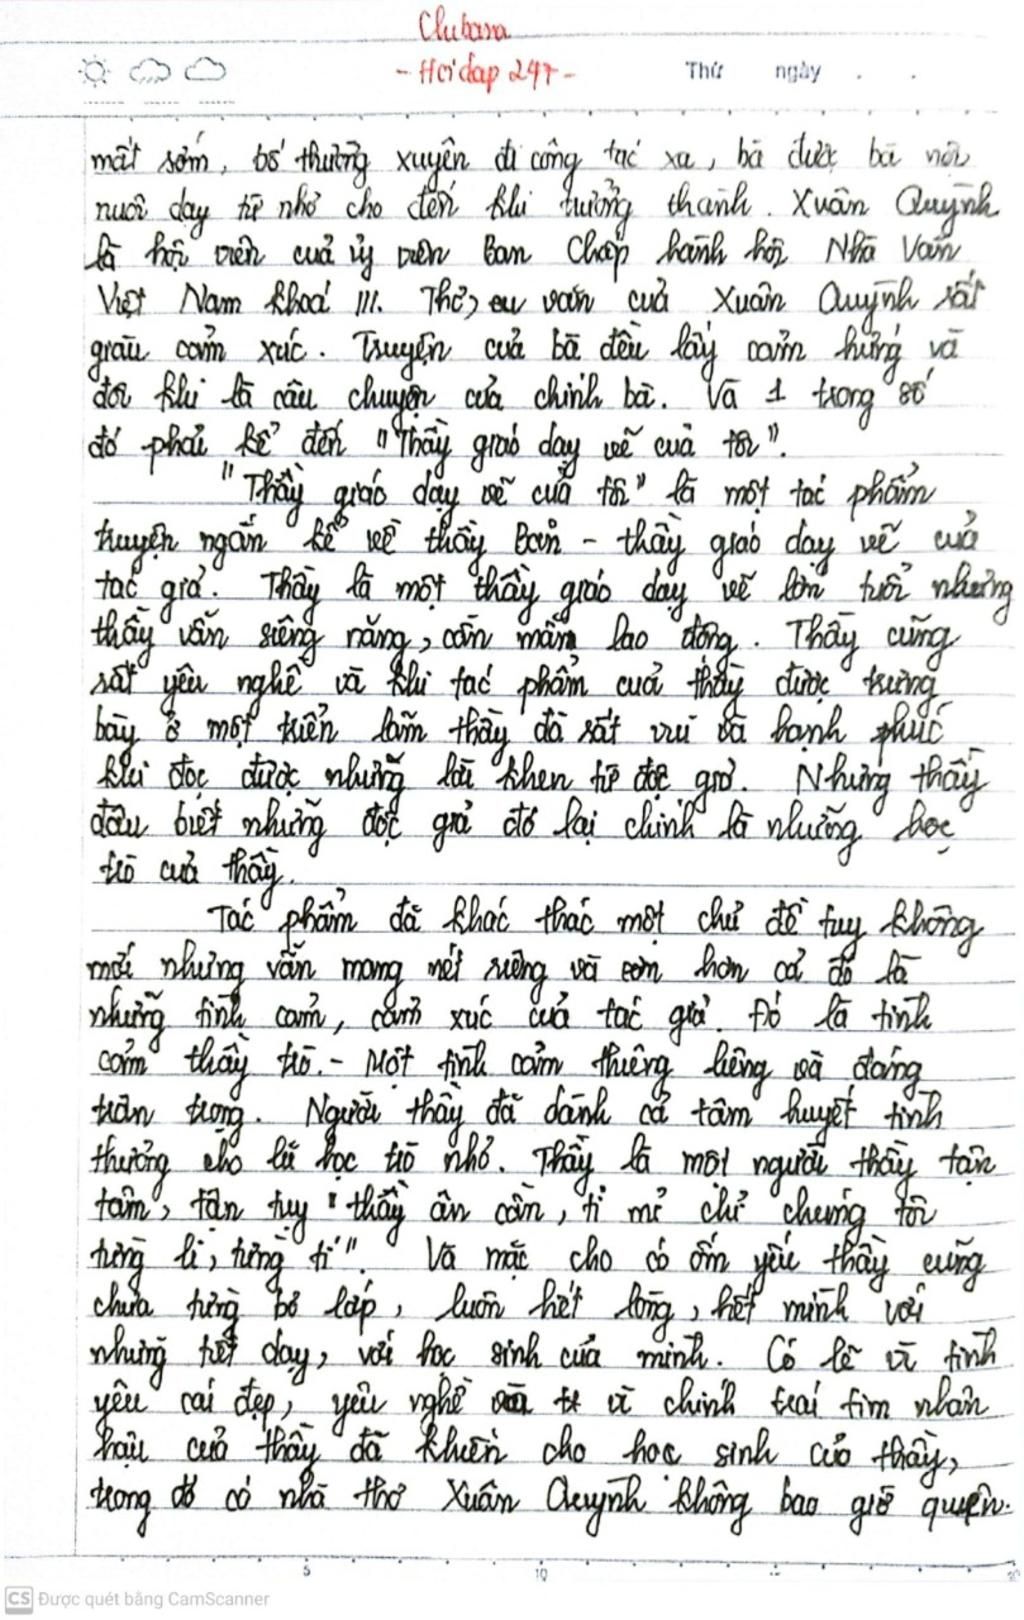 Clubara
- Hoidap 247 -
Thứ ngày . .
mất sớm, bố thường xuyên đi công tác xa, bà được bà nội
nuôi dạy từ nhỏ cho đến khi trưởng thành. Xuân Quỳnh
là hội viên của ủy viên Ban Chấp hành hội Nhà Văn
Việt Nam khoá III. Thơ, văn của Xuân Quỳnh rất
giàu cảm xúc. Truyện của bà đều lấy cảm hứng và
đôi khi là câu chuyện của chính bà. Và 1 trong số
đó phải kể đến "Thầy giáo dạy vẽ của tôi".
"Thầy giáo dạy vẽ của tôi" là một tác phẩm
truyện ngắn kể về thầy Bản - thầy giáo dạy vẽ của
tác giả. Thầy là một thầy giáo dạy vẽ lớn tuổi nhưng
thầy vẫn siêng năng, cần mẫn lao động. Thầy cũng
rất yêu nghề và khi tác phẩm của thầy được trưng
bày ở một triển lãm thầy đã rất vui và hạnh phúc
khi đọc được những lời khen từ độc giả. Nhưng thầy
đâu biết những độc giả đó lại chính là những học
trò của thầy.
Tác phẩm đã khác thác một chủ đề tuy không
mới nhưng vẫn mang nét riêng và hơn cả đó là
những tình cảm, cảm xúc của tác giả. Đó là tình
cảm thầy trò. - Một tình cảm thiêng liêng và đáng
trân trọng. Người thầy đã dành cả tâm huyết tình
thương cho lũ học trò nhỏ. Thầy là một người thầy tận
tâm, tận tụy "thầy ân cần, tỉ mỉ chỉ chúng tôi
từng li, từng tí". Và mặc cho có ốm yếu thầy cũng
chưa từng bỏ lớp, luôn hết lòng, hết mình với
những tiết dạy, với học sinh của mình. Có lẽ vì tình
yêu cái đẹp, yêu nghề vì chính trái tim nhân
hậu của thầy đã khiến cho học sinh của thầy,
trong đó có nhà thơ Xuân Quỳnh không bao giờ quên.
5 10 20
CS Được quét bằng CamScanner